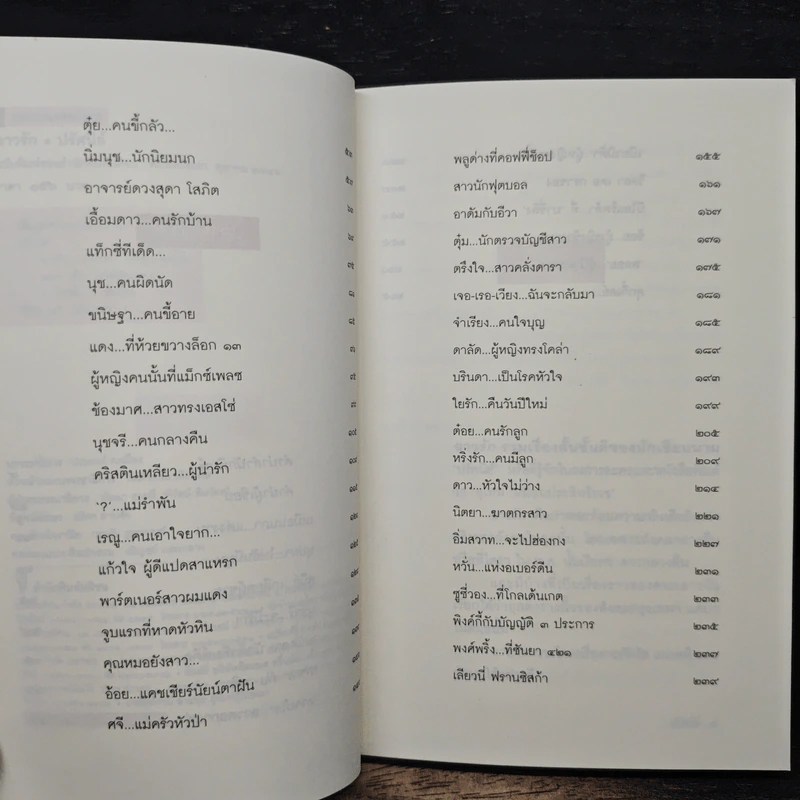 ตุ๋ย...คนขี้กลัว...
นิ่มนุช...นักนิยมนก
อาจารย์ดวงสุดา โสภิต
เอื้อมดาว...คนรักบ้าน
แท็กซี่ทีเด็ด...
นุช...คนผิดนัด
ขนิษฐา...คนขี้อาย
แดง...ที่ห้วยขวางล็อก ๑๓
ผู้หญิงคนนั้นที่แม็กซ์เพลซ
ช้องมาศ...สาวทรงเอสโซ่
นุชจรี...คนกลางคืน
คริสตินเหลียว...ผู้น่ารัก
'?'...แม่รำพัน
เรณู...คนเอาใจยาก...
แก้วใจ ผู้ดีแปดสาแหรก
พาร์ตเนอร์สาวผมแดง
จูบแรกที่หาดหัวหิน
คุณหมอยังสาว...
อ้อย...แคชเชียร์นัยน์ตาฝัน
ศจี...แม่ครัวหัวป่า
พลูด่างที่คอฟฟี่ช็อป ๑๕๕
สาวนักฟุตบอล ๑๖๑
อาดัมกับอีวา ๑๖๗
ตุ่ม...นักตรวจบัญชีสาว ๑๗๑
ตรึงใจ...สาวคลั่งดารา ๑๗๕
เจอ-เรอ-เวียง...ฉันจะกลับมา ๑๘๑
จำเรียง...คนใจบุญ ๑๘๕
ดาลัด...ผู้หญิงทรงโคล่า ๑๘๙
บรินดา...เป็นโรคหัวใจ ๑๙๓
ใยรัก...คืนวันปีใหม่ ๑๙๙
ต๋อย...คนรักลูก ๒๐๕
หริ่งรัก...คนมีลูก ๒๐๙
ดาว...หัวใจไม่ว่าง ๒๑๔
นิตยา...ฆาตกรสาว ๒๒๑
อิ่มสวาท...จะไปฮ่องกง ๒๒๗
หวั่น...แห่งอเบอร์ดีน ๒๓๑
ซูซี่วอง...ที่โกลเด้นเกต ๒๓๓
พิงค์กี้กับบัญญัติ ๓ ประการ ๒๓๕
พงศ์พริ้ง...ที่ซันยา ๔๒๑ ๒๓๗
เลียวนี่ ฟรานซิสก้า ๒๓๙